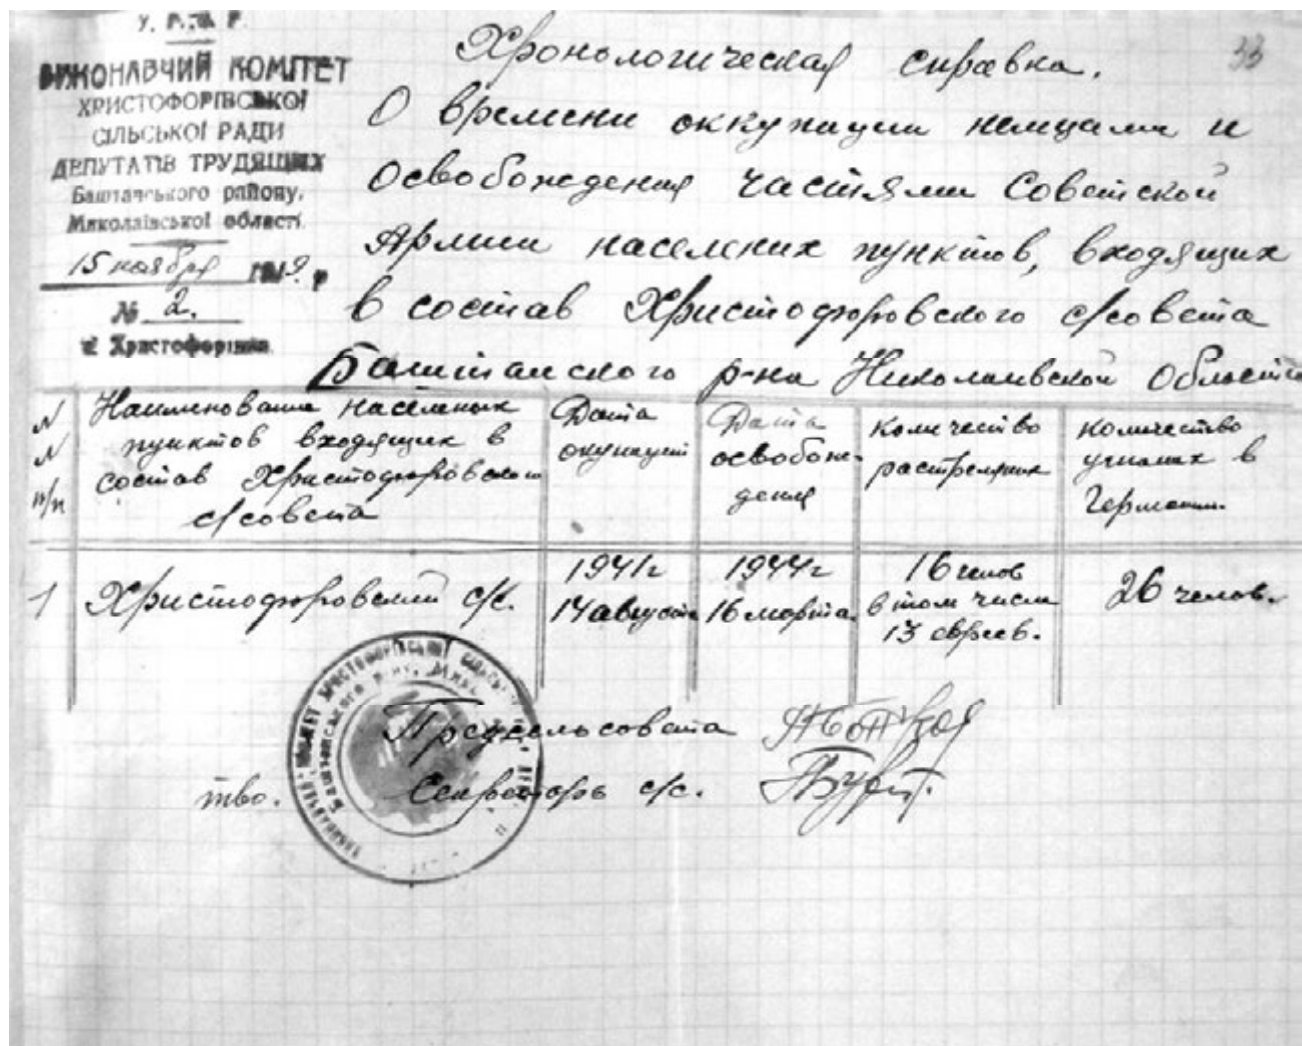 У. Р. С. Р.
ВИКОНАВЧИЙ КОМІТЕТ
ХРИСТОФОРІВСЬКОЇ
СІЛЬСЬКОЇ РАДИ
ДЕПУТАТІВ ТРУДЯЩИХ
Баштанського району,
Миколаївської області.
15 ноября 1949. р
№ 2.
с Христофорівка
33
Хронологическая справка.
О времени оккупации немцами и
освобождения частями Советской
Армии населених пунктов, входящих
в состав Христофоровского с/совета
Баштанского р-на Николаевской Области
N N п/п
Наименования населеных
пунктов входящих в
состав Христофоровского
с/совета
Дата
окупации
Дата
освобож-
дения
Количество
растреляних
количество
угнаных в
Германии.
1 Христофоровский с/с.
1941г
14 августа
1944г
16 марта.
16 челов
в том числе
13 евреев.
26 челов.
Предсельсовета
тво. Секретарь с/с.